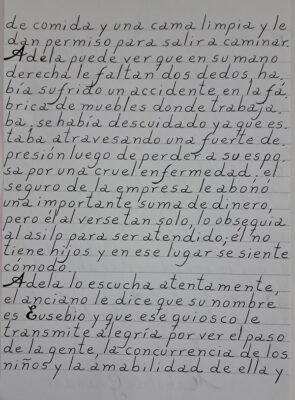 de comida y una cama limpia y le
dan permiso para salir a caminar.
Adela puede ver que en su mano
derecha le faltan dos dedos, ha_
bía sufrido un accidente en la fá_
brica de muebles donde trabaja_
ba, se había descuidado ya que es_
taba atravesando una fuerte de_
presión luego de perder a su espo_
sa por una cruel enfermedad; el
seguro de la empresa le abonó
una importante suma de dinero,
pero él al verse tan solo, lo obsequia
al asilo para ser atendido; él no
tiene hijos y en ese lugar se siente
cómodo.
Adela lo escucha atentamente,
el anciano le dice que su nombre
es Eusebio y que ese quiosco le
transmite alegría por ver el paso
de la gente, la concurrencia de los
niños y la amabilidad de ella y